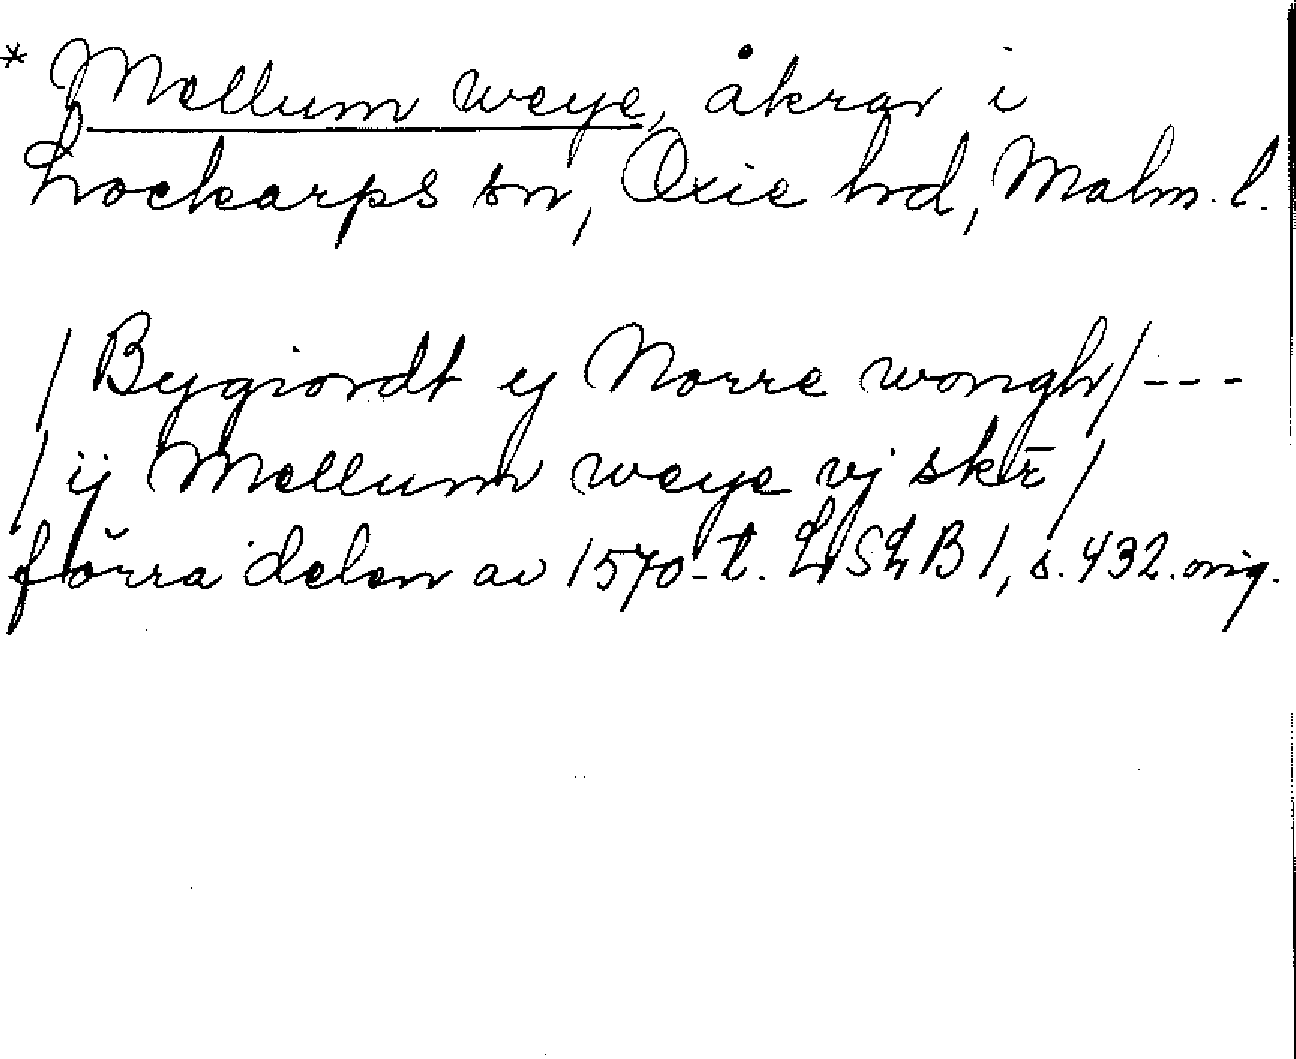 * Mellum weye, åkrar i
Lockarps sn, Oxie hd, Malm. l.
/ Bygiordt ij Norre wongh / - - -
/ ij Mellum weye vj skr̄ /
förra delen av 1570-t. LSLB 1, s. 432. orig.